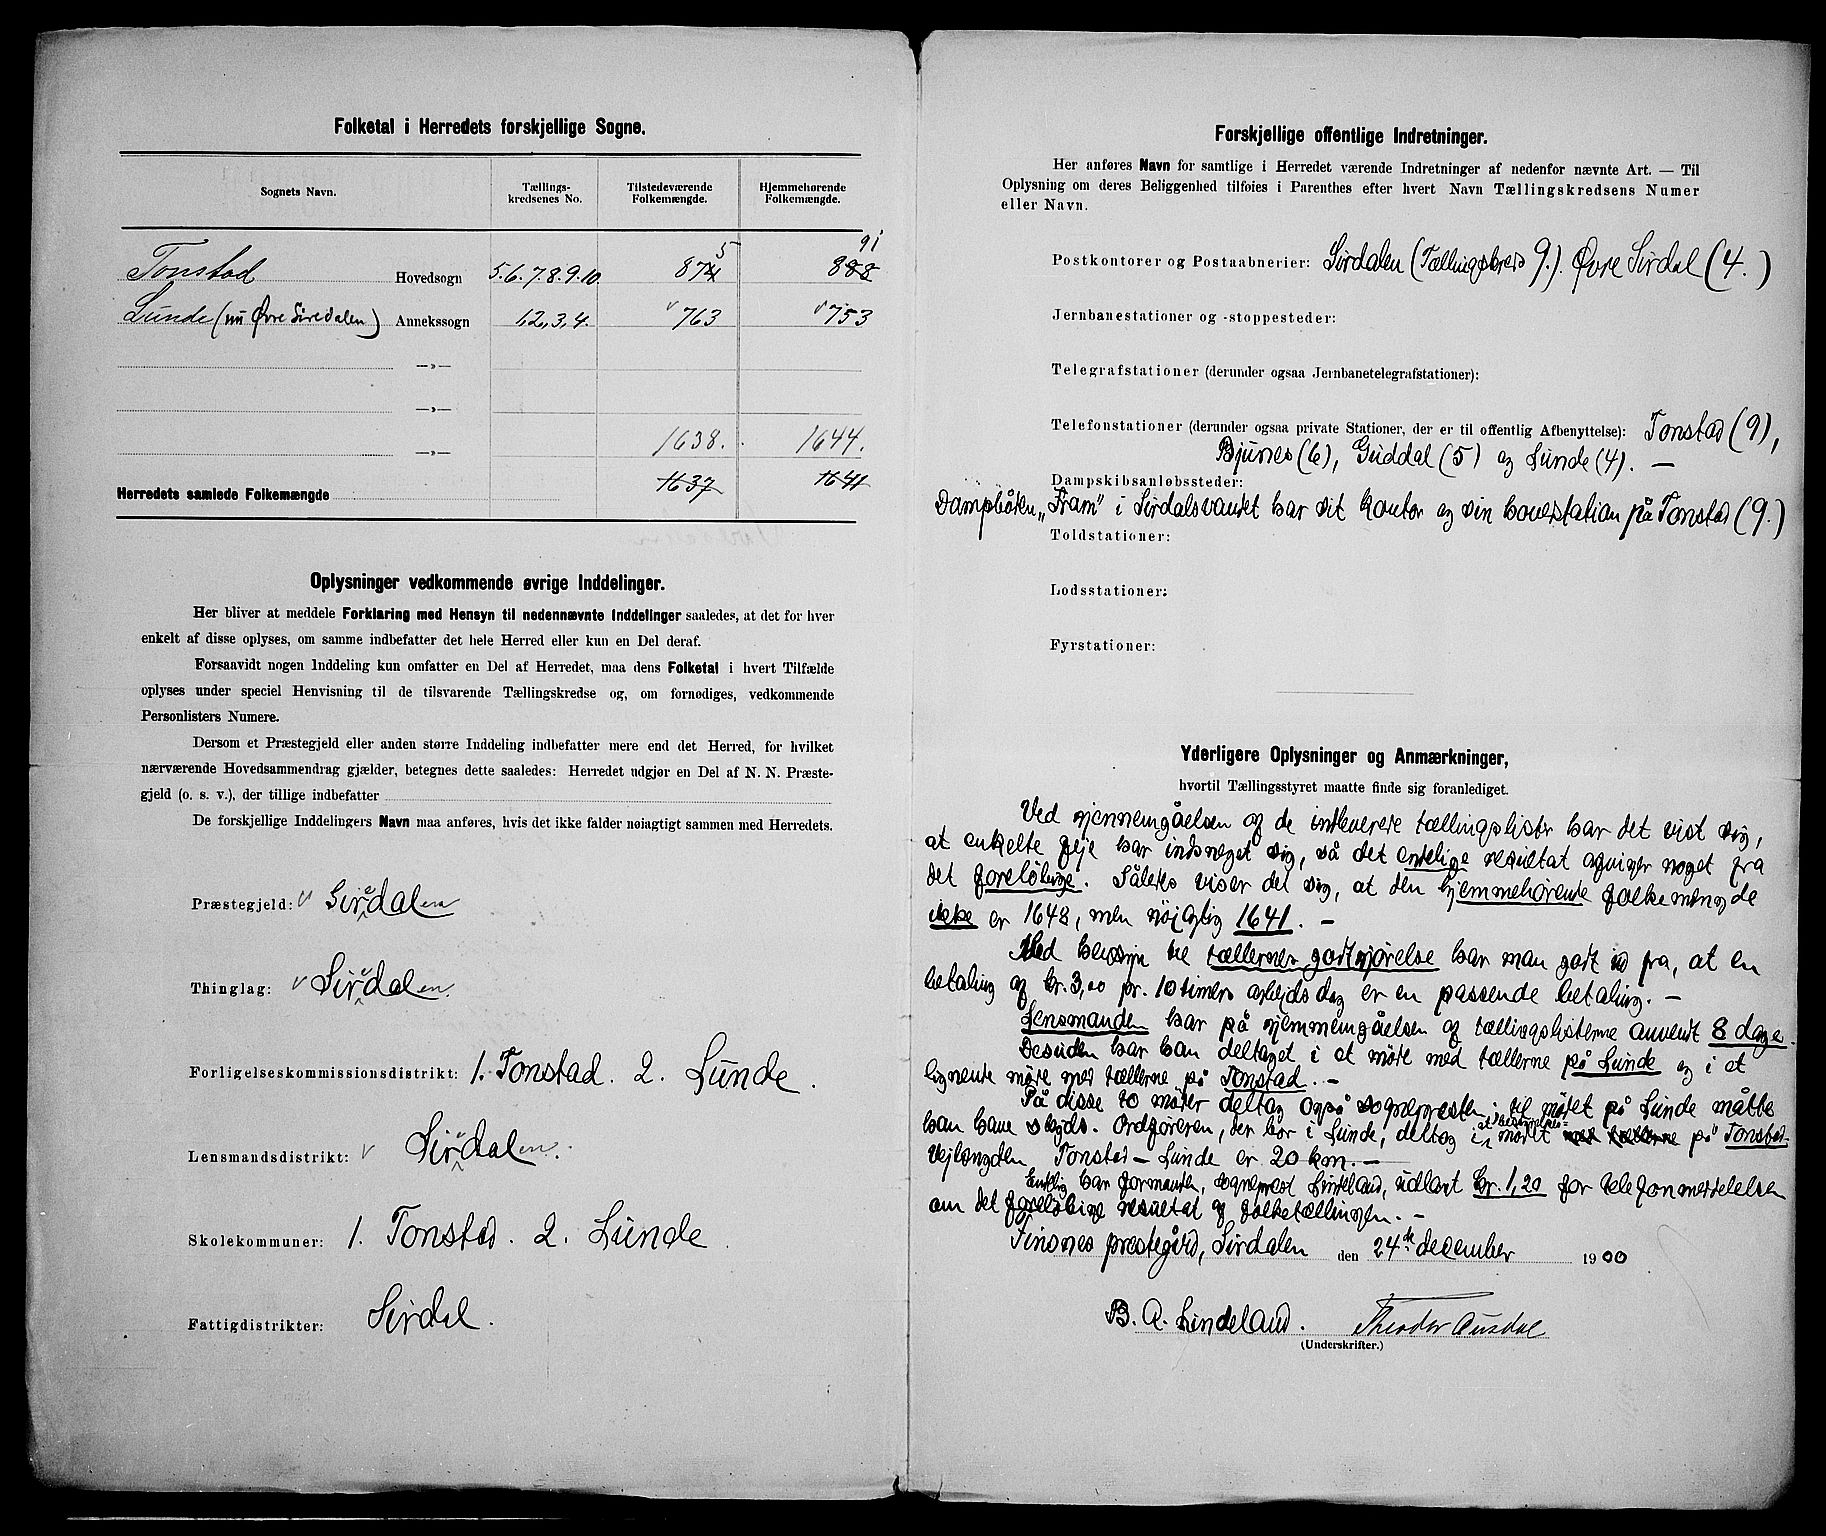 Folketal i Herredets forskjellige Sogne.
Sognets Navn. Tællings-kredsenes No. Tilstedeværende Folkemængde. Hjemmehørende Folkemængde.
Tonstad Hovedsogn 5.6.7.8.9.10. 874 5 888 91
Lunde (nu Øvre Siredalen) Annekssogn 1,2,3,4. 763 753
—»—
—»—
—»— 1638. 1644.
Herredets samlede Folkemængde 1637 1641
Oplysninger vedkommende øvrige Inddelinger.
Her bliver at meddele Forklaring med Hensyn til nedennævnte Inddelinger saaledes, at det for hver
enkelt af disse oplyses, om samme indbefatter det hele Herred eller kun en Del deraf.
Forsaavidt nogen Inddeling kun omfatter en Del af Herredet, maa dens Folketal i hvert Tilfælde
oplyses under speciel Henvisning til de tilsvarende Tællingskredse og, om fornødiges, vedkommende
Personlisters Numere.
Dersom et Præstegjeld eller anden større Inddeling indbefatter mere end det Herred, for hvilket
nærværende Hovedsammendrag gjælder, betegnes dette saaledes: Herredet udgjør en Del af N. N. Præste-
gjeld (o. s. v.), der tillige indbefatter
De forskjellige Inddelingers Navn maa anføres, hvis det ikke falder nøiagtigt sammen med Herredets.
Præstegjeld: Sirdalen
Thinglag: Sirdalen.
Forligelseskommissionsdistrikt: 1. Tonstad. 2. Lunde.
Lensmandsdistrikt: Sirdalen.
Skolekommuner: 1. Tonstad. 2. Lunde.
Fattigdistrikter: Sirdal.
Forskjellige offentlige Indretninger.
Her anføres Navn for samtlige i Herredet værende Indretninger af nedenfor nævnte Art. — Til
Oplysning om deres Beliggenhed tilføies i Parenthes efter hvert Navn Tællingskredsens Numer
eller Navn.
Postkontorer og Postaabnerier: Sirdalen (Tællingskreds 9.). Øvre Sirdal (4.)
Jernbanestationer og -stoppesteder:
Telegrafstationer (derunder ogsaa Jernbanetelegrafstationer):
Telefonstationer (derunder ogsaa private Stationer, der er til offentlig Afbenyttelse): Tonstad (9),
Bjunes (6), Guddal (5) og Lunde (4). —
Dampskibsanløbssteder:
Dampbåten „Fram" i Sirdalsvandet har sit kontor og sin hovedstation på Tonstad (9.)
Toldstationer:
Lodsstationer:
Fyrstationer:
Yderligere Oplysninger og Anmærkninger,
hvortil Tællingsstyret maatte finde sig foranlediget.
Ved gjennemgåelsen af de indleverede tællingslister har det vist sig,
at enkelte feje har indsneget sig, så det endelige resultat afviger noget fra
det foreløbige. Således viser det sig, at den hjemmehørende folkemængde
ikke er 1648, men nøjagtig 1641. —
Med hensyn til tællernes godtgjørelse har man gåt ud fra, at en
betaling af kr. 3,00 pr. 10 timers arbejdsdag er en passende betaling. —
Lensmanden har på gjennemgåelsen af tællingslisterne anvendt 8 dage.
Desuden har han deltaget i et møde med tællerne på Lunde og i et
lignende møde med tællerne på Tonstad. —
På disse to møder deltog også sognepresten; til mødet på Lunde måtte
han have skyds. Ordføreren, der bor i Lunde, deltog i et bestyrelses-mødet med tællerne på Tonstad.
Vejlængden Tonstad — Lunde er 20 km. —
Endelig har formanden, sogneprest Lindeland, udlagt kr. 1,20 for telefonmeddelelsen
om det foreløbige resultat af folketællingen. —
Tinsnes prestegård, Sirdalen den 24de december 1900
B. A. Lindeland. Theodor Ousdal
(Underskrifter.)